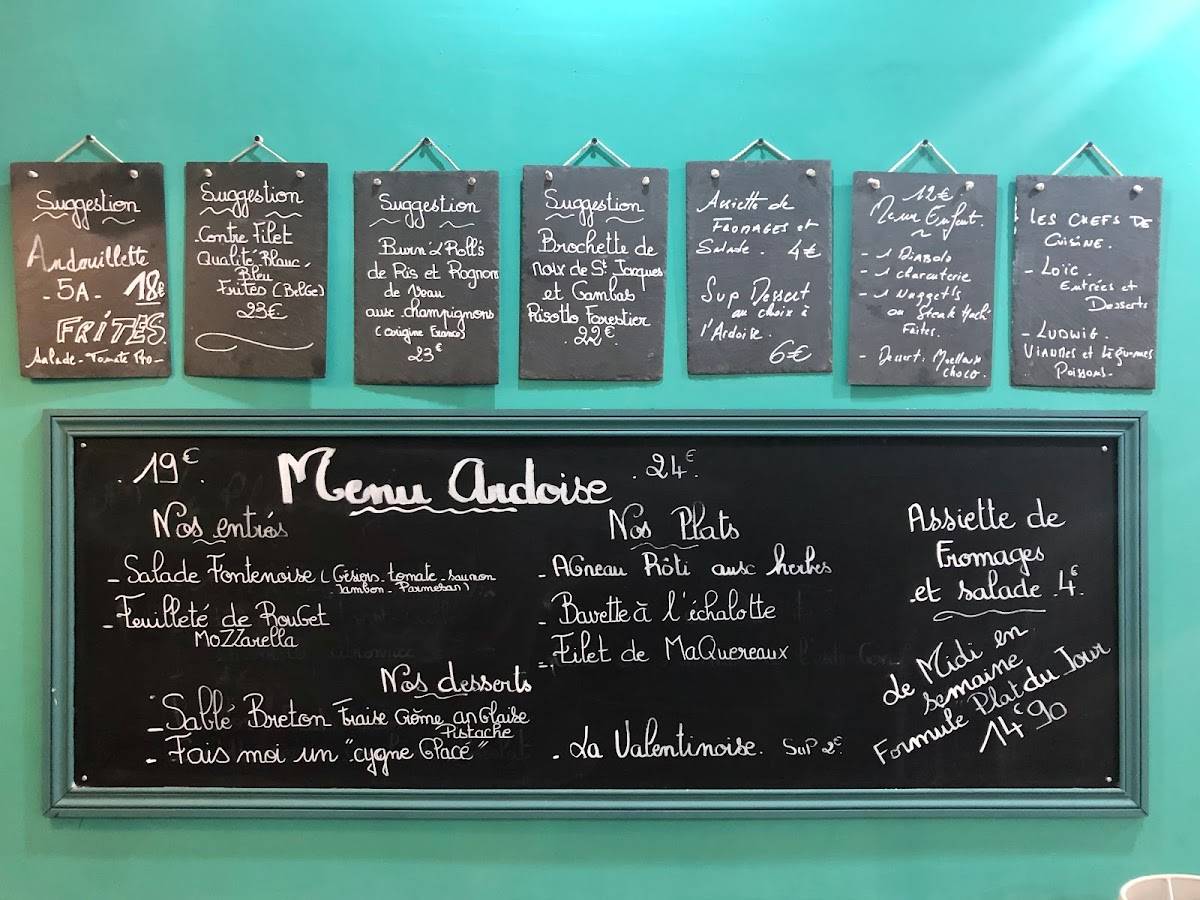 Suggestion
Andouillette
- 5A - 18€
FRITES
Salade - Tomate Pro -
Suggestion
Contre Filet
Qualité Blanc,
Bleu
Frites (Belge)
23€
Suggestion
de Ris et Rognon
de Veau
aux champignons
(origine France)
23€
Suggestion
Brochette de
noix de St Jacques
et Gambas
Risotto Forestier
22€
Assiette de
FROMAGES et
Salade. 4€
Sup Dessert
au choix à
l'Ardoise.
6€
12€
Menu Enfant.
- 1 Diabolo
- 1 charcuterie
- 1 Nugget's
ou Steak Hach
Frites.
- Dessert. Moelleux
choco.
LES CHEFS DE
CUISINE.
- Loïc.
Entrées et
Desserts
- LUDWIG.
VIANDES et Légumes
Poissons -
19€ Menu Ardoise 24€
Nos entrés
- Salade Fontenoise (Gésiers - tomate - saumon
Jambon - Parmesan)
- Feuilleté de Rouget
MOZZarella
Nos desserts
- Sablé Breton Fraise Crème anglaise
Pistache
- Fais moi un "cygne Glacé"
Nos Plats
- AGneau Rôti aux herbes
- Bavette à l'échalotte
- Filet de MaQuereaux
- La Valentinoise. SuP 2€
Assiette de
Fromages
et salade 4€
de Midi en
semaine
Formule Plat du Jour
14€90